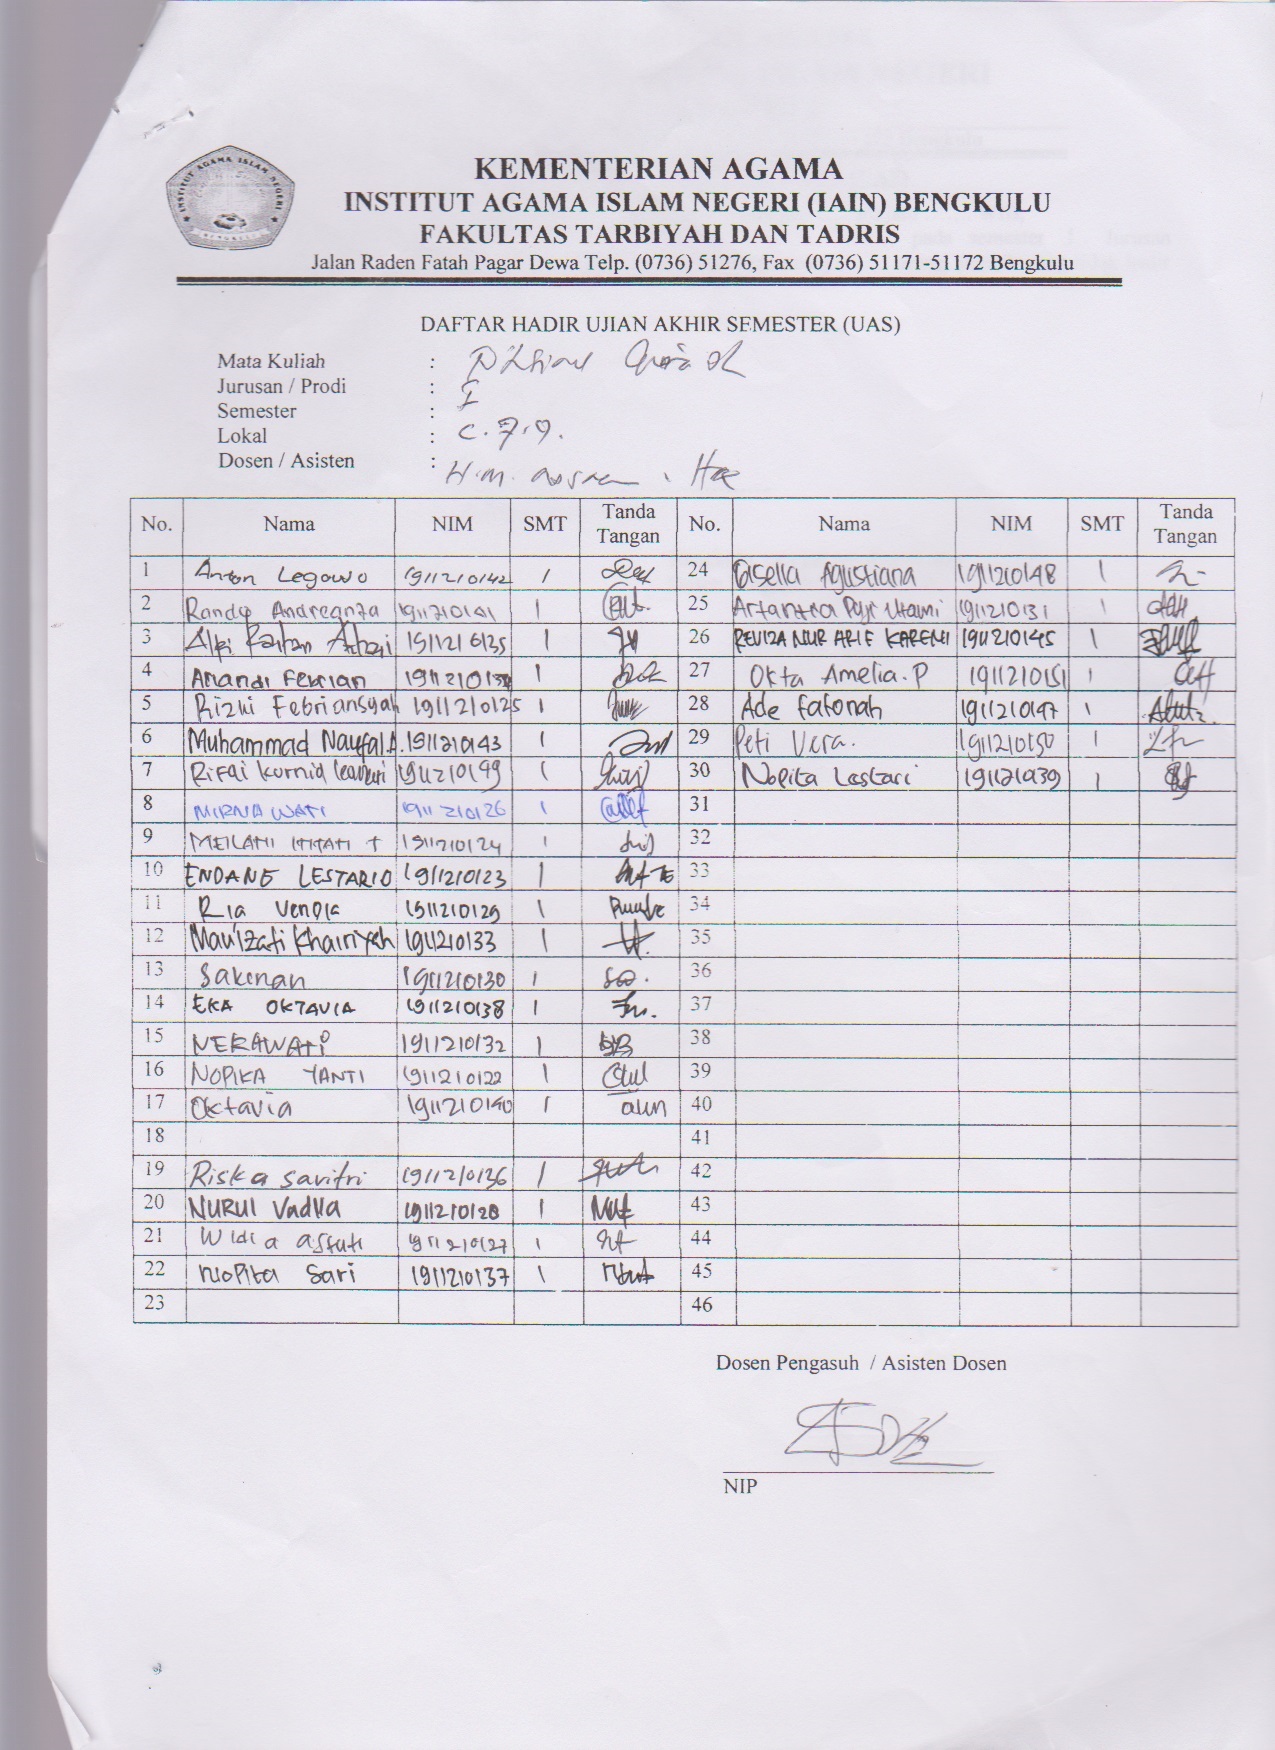 KEMENTERIAN AGAMA
INSTITUT AGAMA ISLAM NEGERI (IAIN) BENGKULU
FAKULTAS TARBIYAH DAN TADRIS
Jalan Raden Fatah Pagar Dewa Telp. (0736) 51276, Fax (0736) 51171-51172 Bengkulu
DAFTAR HADIR UJIAN AKHIR SEMESTER (UAS)
Mata Kuliah :
Jurusan / Prodi : I
Semester :
Lokal : C.7.9.
Dosen / Asisten : H.M.
No. Nama NIM SMT Tanda Tangan No. Nama NIM SMT Tanda Tangan
1 Anton Legowo 1911210142 1 24 Gisella Agustiana 1911210148 1
2 Randy 1911210141 1 25 Utami 1911210131 1
3 1911210135 1 26 REVIZA NUR ARIF KARENI 1911210145 1
4 Anandi Ferian 1 27 Okta Amelia.P 1911210151 1
5 Rizki Febriansyah 1911210125 1 28 Ade Fatonah 1911210147 1
6 Muhammad Naufal.A. 1911210143 1 29 Peti Vera. 1911210150 1
7 Rifai Kurnia 1911210149 1 30 Nopita Lestari 1911210139 1
8 MIRNA WATI 1911210126 1 31
9 MEILANI 1911210124 1 32
10 ENDANG LESTARIO 1911210123 1 33
11 Ria 1911210129 1 34
12 Mau'izati Khairiyah 1911210133 1 35
13 Sakinah 1911210130 1 36
14 EKA OKTAVIA 1911210138 1 37
15 NERAWATI 1911210132 1 38
16 NOPIKA YANTI 1911210122 1 39
17 Oktavia 1911210140 1 40
18 41
19 Riska Savitri 1911210136 1 42
20 NURUL Vadlla 1911210128 1 43
21 Widia astuti 1911210127 1 44
22 Nopita Sari 1911210137 1 45
23 46
Dosen Pengasuh / Asisten Dosen
NIP